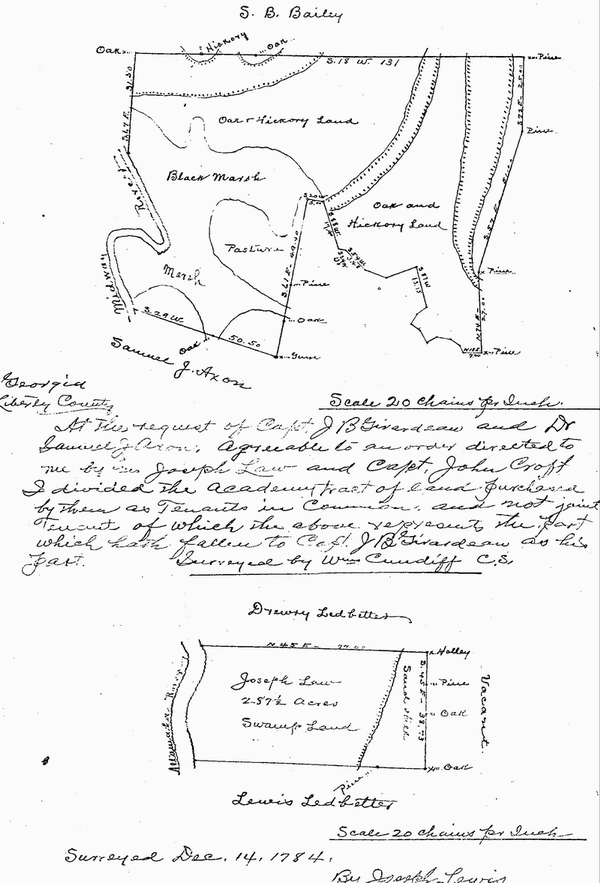 S. B. Bailey
Oak
Hickory
Oak
Pine
S. 18 W. 131
Oak & Hickory Land
Pine
River
Black Marsh
Oak and
Hickory Land
Pasture
Pine
Pine
Marsh
Midway
Oak
S. 29 W.
Oak
50.50
Gum
Pine
Samuel J. Axon
Georgia
Liberty County
Scale 20 Chains pr Inch.
At the request of Capt. J B Girardeau and Dr
Samuel J Axon, agreeable to an order directed to
me by Joseph Law and Capt. John Croft
I divided the Academy tract of land purchased
by them as Tenants in Common, and not joint
Tenant of which the above represents the part
which hath fallen to Capt. J B Girardeau as his
part. Surveyed by Wm Cundiff C.S.
Drewry Ledbetter
N. 45 E
Holley
Joseph Law
257½ Acres
Swamp Land
Sand Hill
S. 45 E
Pine
Oak
Vacant.
Altamaha River
Oak
Pine
Lewis Ledbetter
Scale 20 chains pr Inch
Surveyed Dec. 14, 1784.
By Joseph Lewis